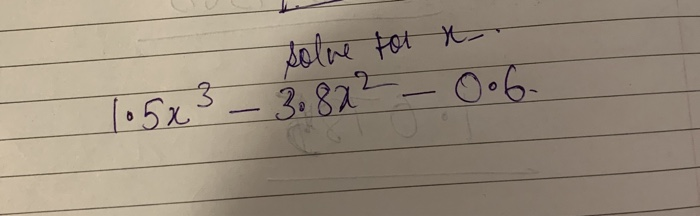 solve for x.
1.5x³ - 3.8x² - 0.6.